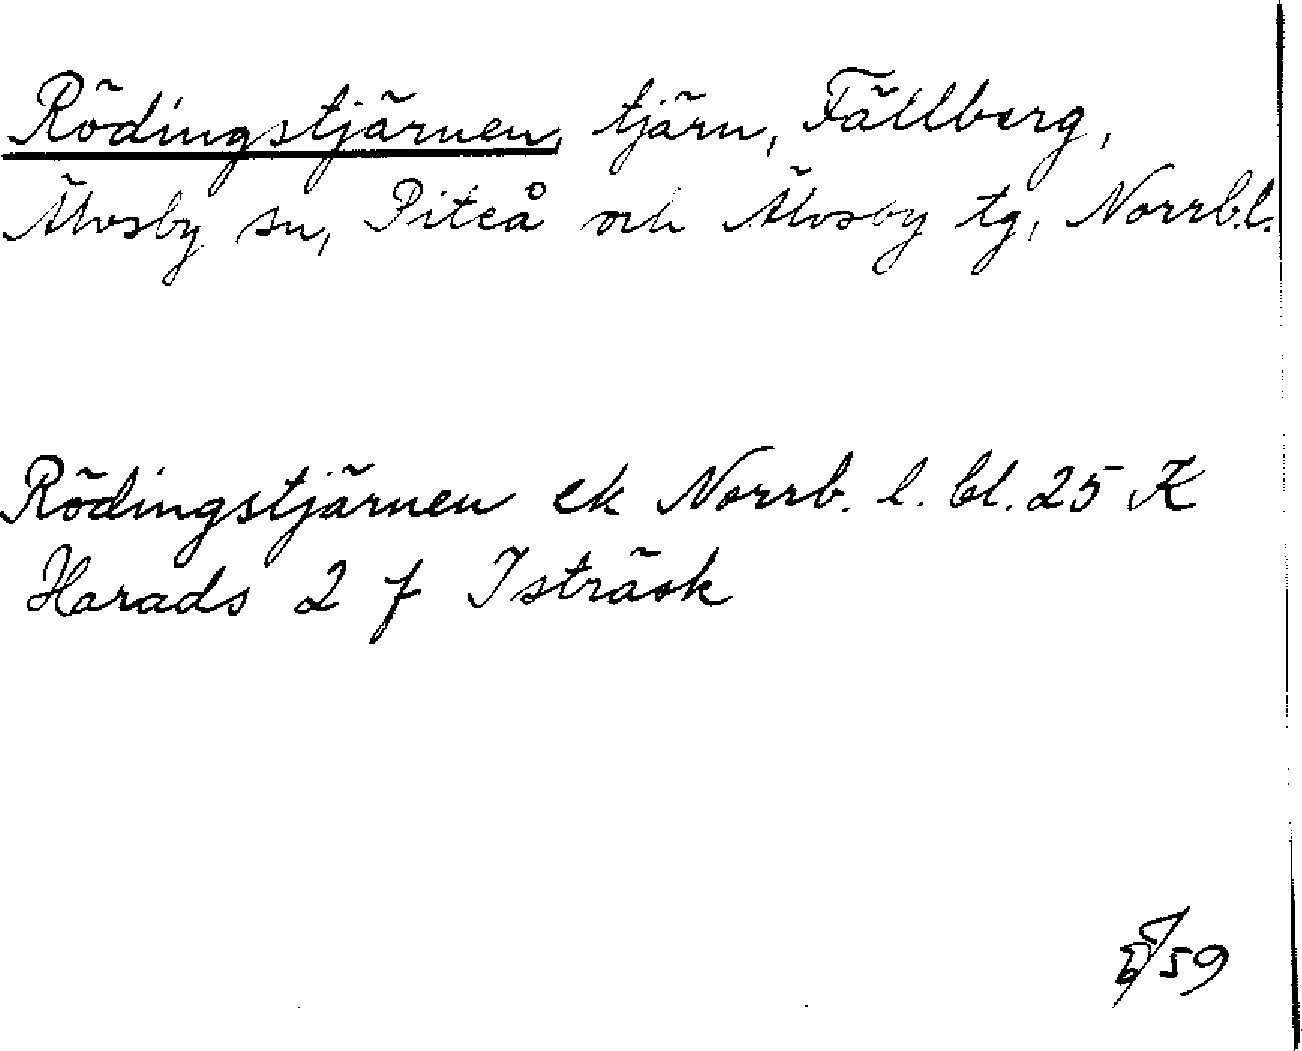 Rödingstjärnen, tjärn, Fällberg,
Älvsby sn, Piteå och Älvsby tg, Norrb.l.
Rödingstjärnen ek Norrb. l. bl. 25 K
Harads 2 f Isträsk
59